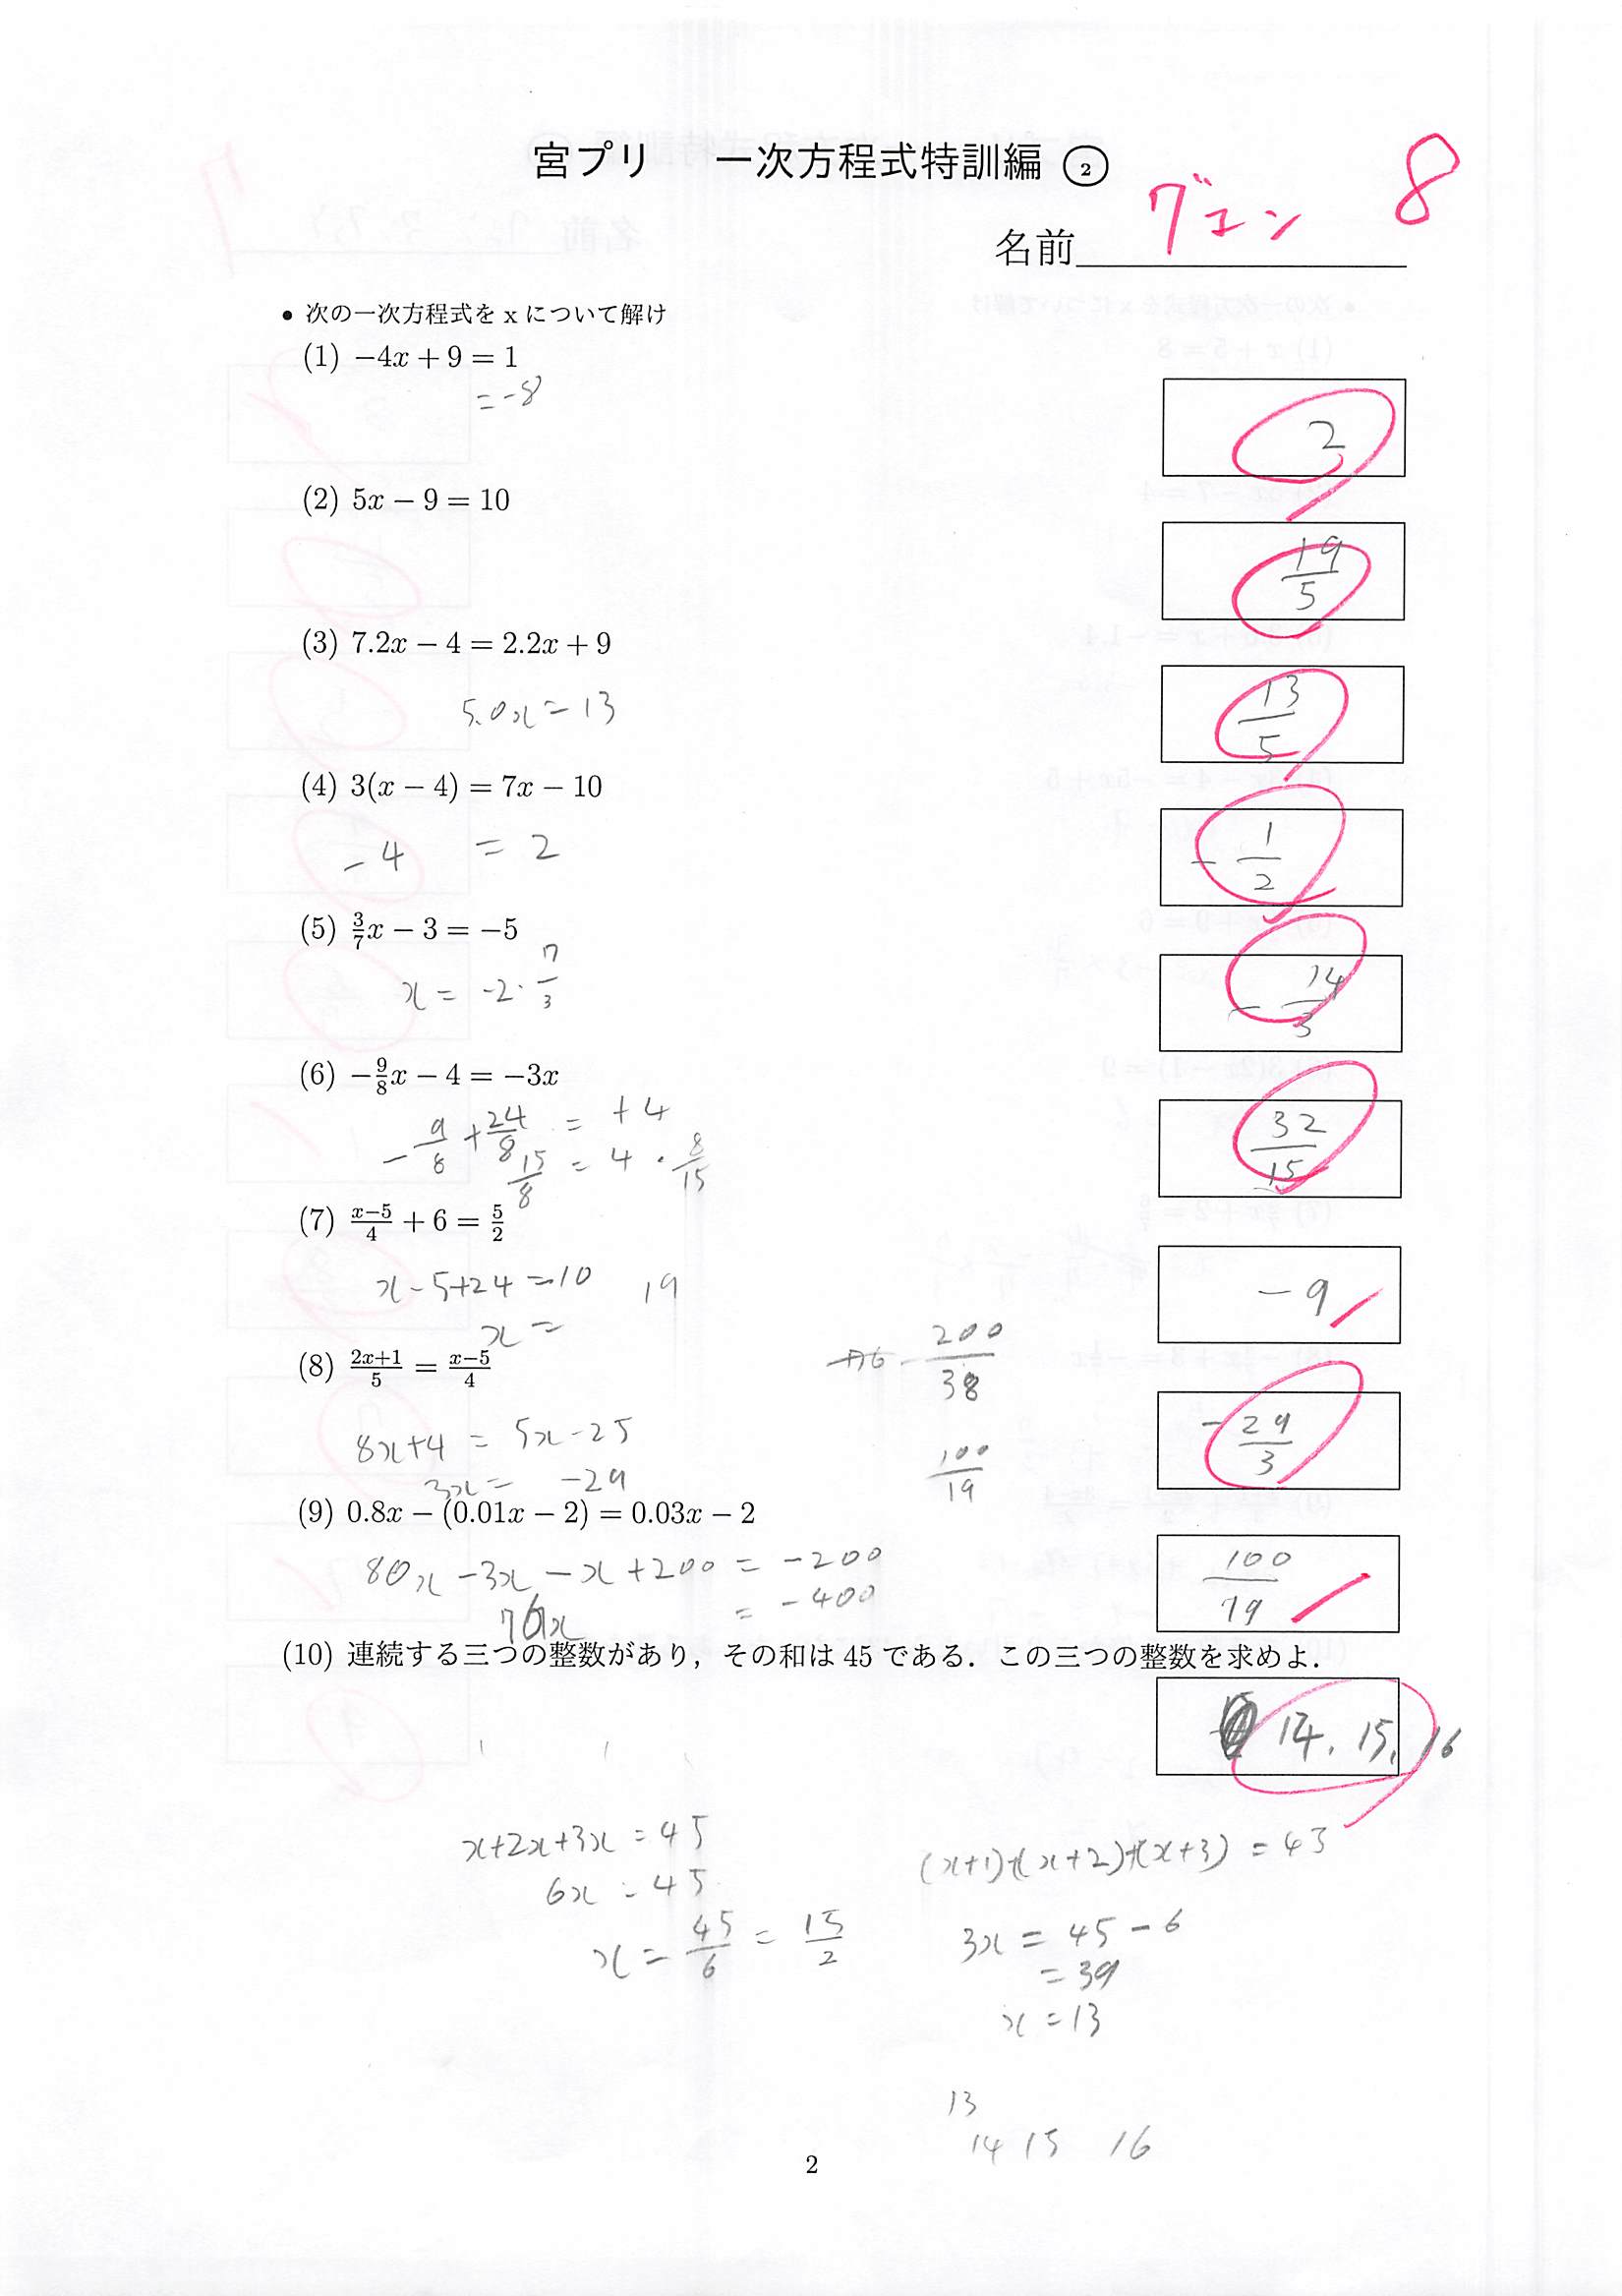 宮プリ 一次方程式特訓編 ②
グエン 8
名前
• 次の一次方程式を x について解け
(1) −4x + 9 = 1
= -8
2
(2) 5x − 9 = 10
19/5
(3) 7.2x − 4 = 2.2x + 9
5.0x = 13
13/5
(4) 3(x − 4) = 7x − 10
-4 = 2
- 1/2
(5) 3/7 x − 3 = −5
x = -2 · 7/3
- 14/3
(6) −9/8 x − 4 = −3x
- 9/8 + 24/8 = +4
15/8 = 4 · 8/15
32/15
(7) (x−5)/4 + 6 = 5/2
x - 5 + 24 = 10 19
x =
-9
(8) (2x+1)/5 = (x−5)/4
200/38
8x+4 = 5x-25
3x = -29
100/19
- 29/3
(9) 0.8x − (0.01x − 2) = 0.03x − 2
80x - 3x - x + 200 = -200
76x = -400
100/19
(10) 連続する三つの整数があり，その和は 45 である．この三つの整数を求めよ．
14, 15, 16
x+2x+3x = 45
6x = 45
x = 45/6 = 15/2
(x+1)+(x+2)+(x+3) = 45
3x = 45 - 6
= 39
x = 13
13
14 15 16
2